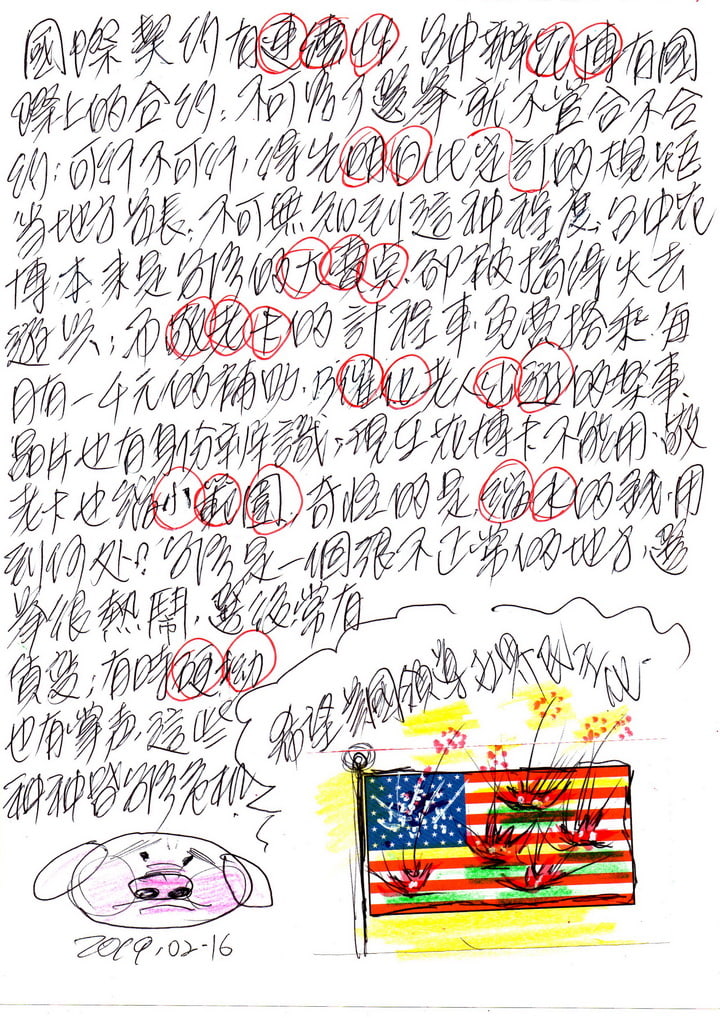 國際契約有連續性,台中辦花博有國
際上的合約;不可為了選舉,就不管合不合
約;可行不可行,得先明白此定訂的規矩
當地方首長,不可無知到這種程度,台中花
博本來是台灣的大賣点,卻被搞得失去
遊興;而敬老卡的計程車免費搭乘,每
月有一千元的補助,乃催化老人出遊的樂事,
晶片也有身份辨識;現在花博卡不能用,敬
老卡也縮小範圍,奇怪的是,縮水的錢,用
到何处?台灣是一個很不正常的地方,選
舉很熱鬧,選後常有
質變;有時硬拗
也有掌声,這些
種種皆台灣危机
希望美國領導
2019.02-16